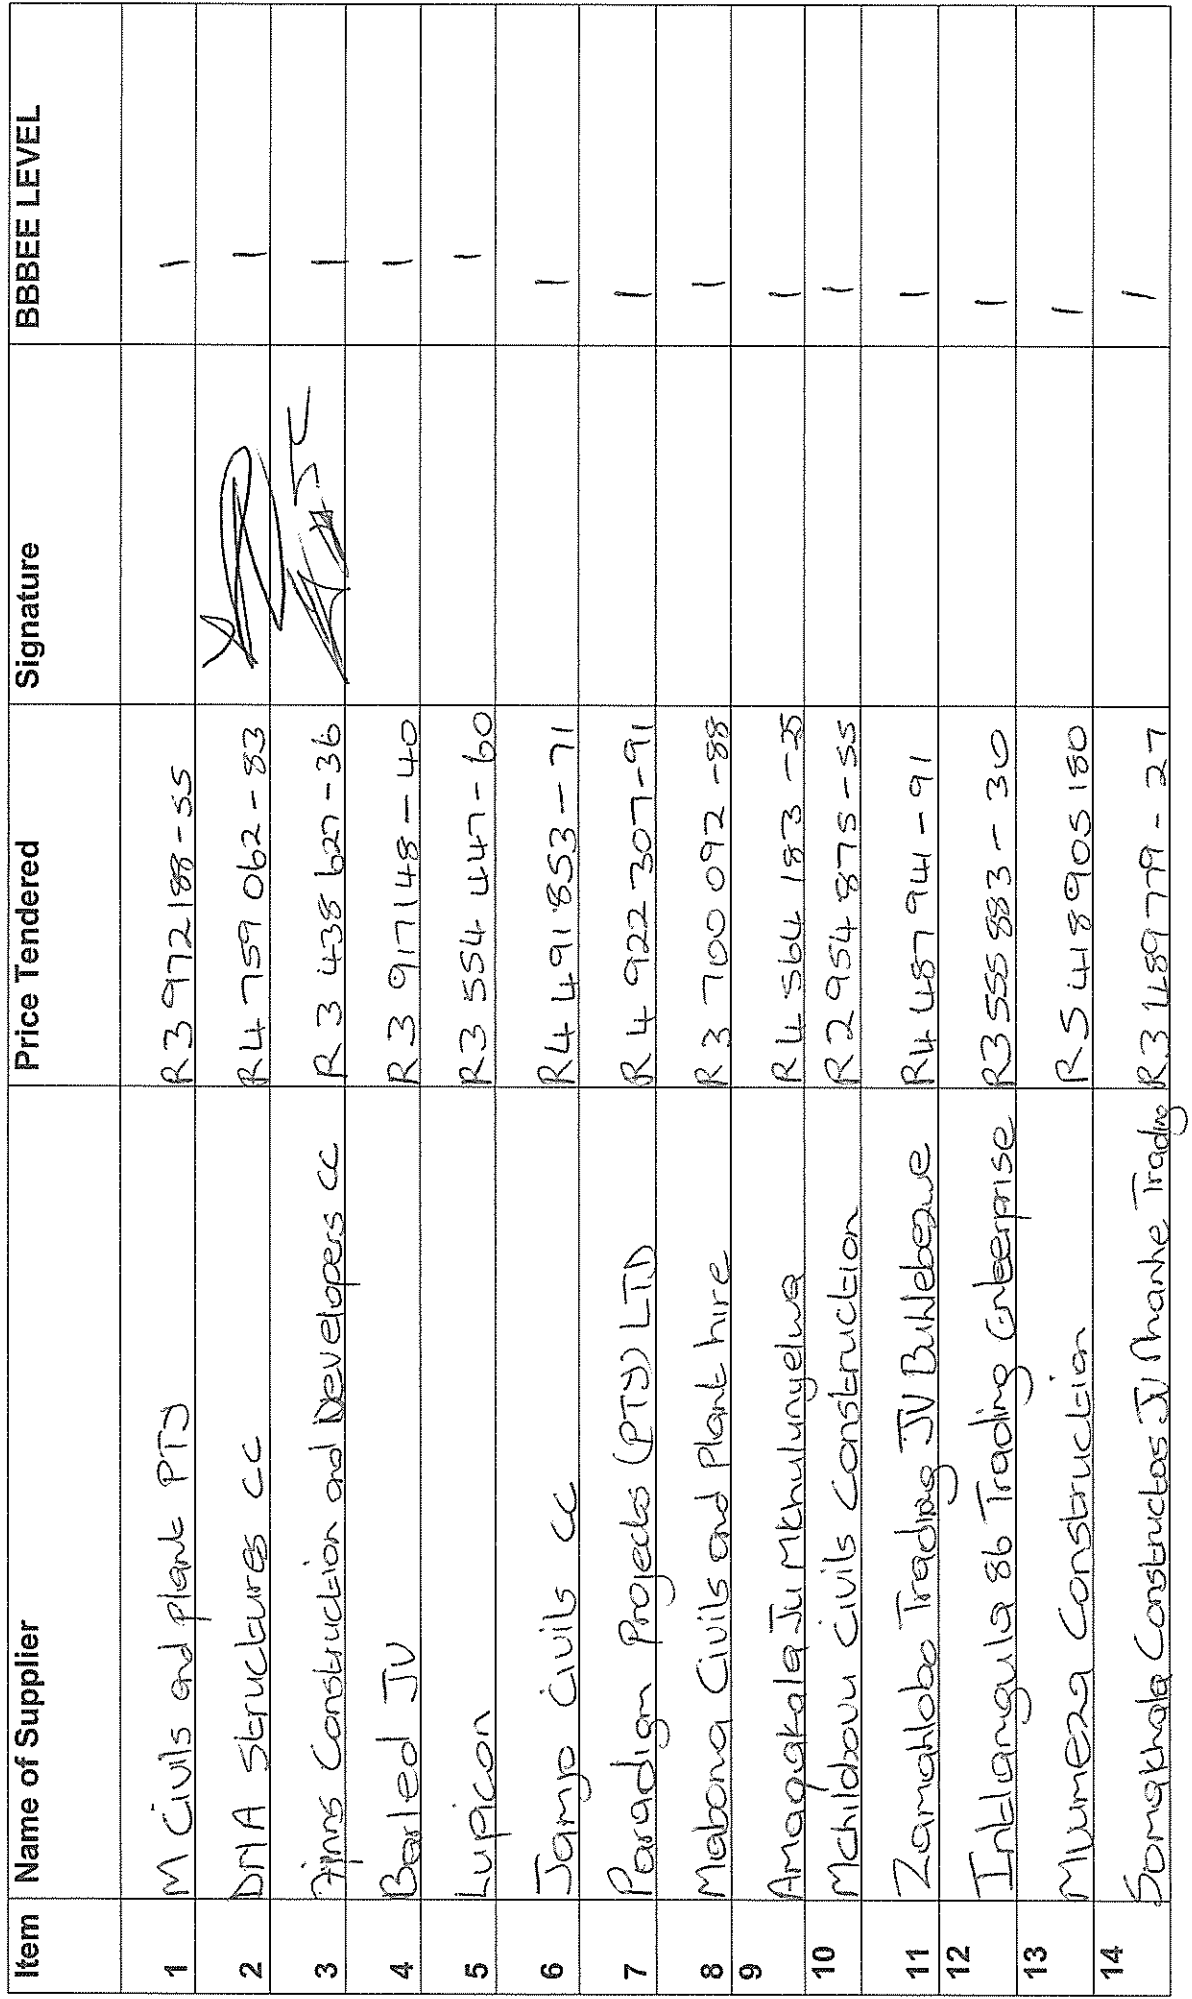 Item Name of Supplier Price Tendered Signature BBBEE LEVEL
1 M Civils and plant PTY R3 972 188-55 1
2 DMA Structures CC R4 759 062-83 1
3 Construction and Developers CC R3 438 627-36 1
4 Barled JV R3 917 148-40 1
5 Lupicon R3 554 447-60 1
6 Jamjo Civils CC R4 491 853-71 1
7 Paradigm Projects (PTY) LTD R4 922 307-91 1
8 Mabona Civils and Plant hire R3 700 092-88 1
9 Amaqakala Jv Mkhulunyelwa R4 564 183-25 1
10 Mchilobovu Civils Construction R2 954 875-55 1
11 Zamahlobo Trading JV Buhlebezwe R4 487 941-91 1
12 Intlangula 86 Trading Enterprise R3 555 883-30 1
13 Mvumeza Construction R5 418 905 180 1
14 Somakhala Constructos JV Manhe Trading R3 489 779-27 1